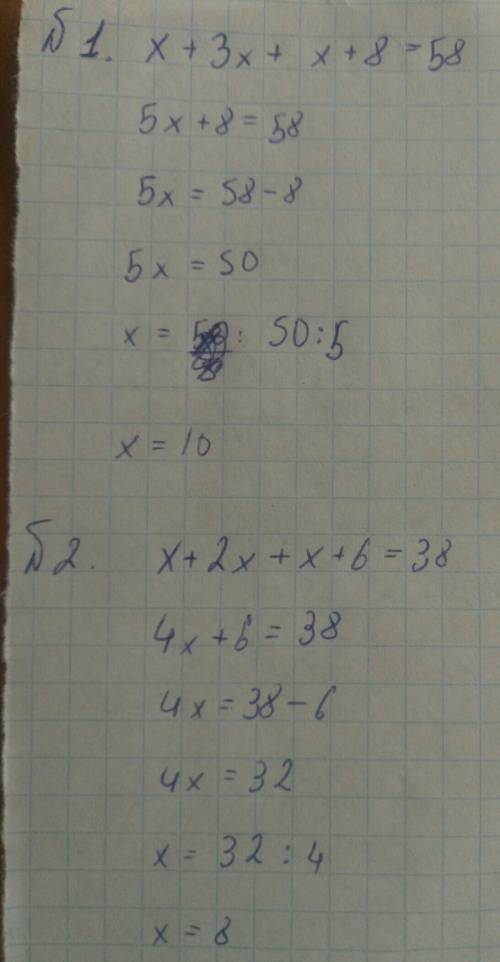 № 1. x + 3x + x + 8 = 58
5x + 8 = 58
5x = 58 - 8
5x = 50
x = 50 : 5
x = 10
№ 2. x + 2x + x + 6 = 38
4x + 6 = 38
4x = 38 - 6
4x = 32
x = 32 : 4
x = 8